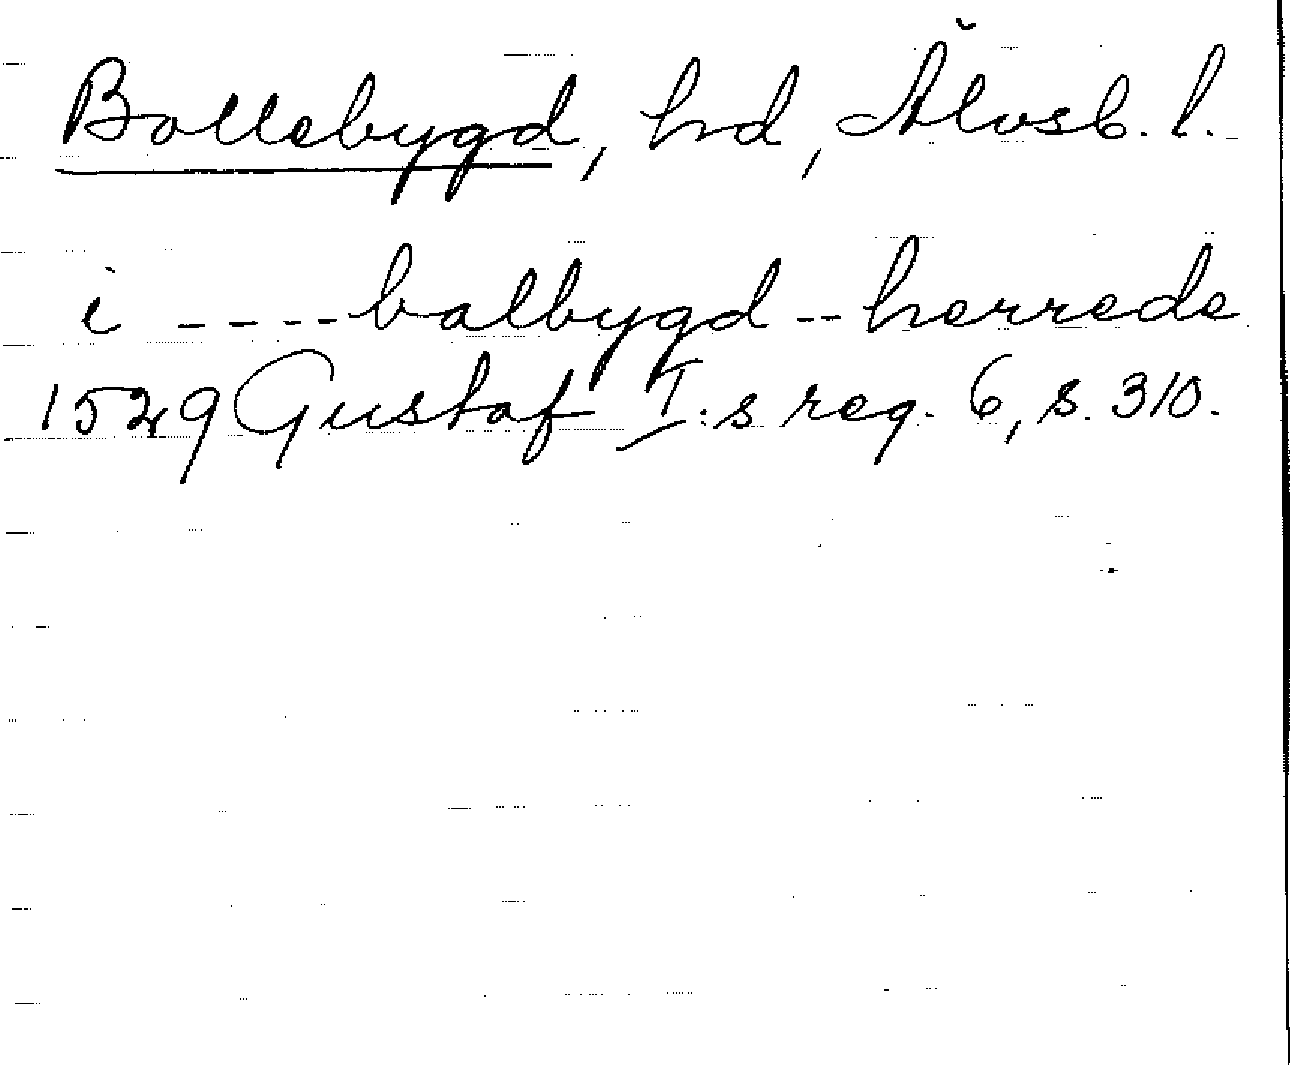 Bollebygd, hd, Älvsb. l.
i ---- balbygd -- herrede
1529 Gustaf I:s reg. 6, s. 310.